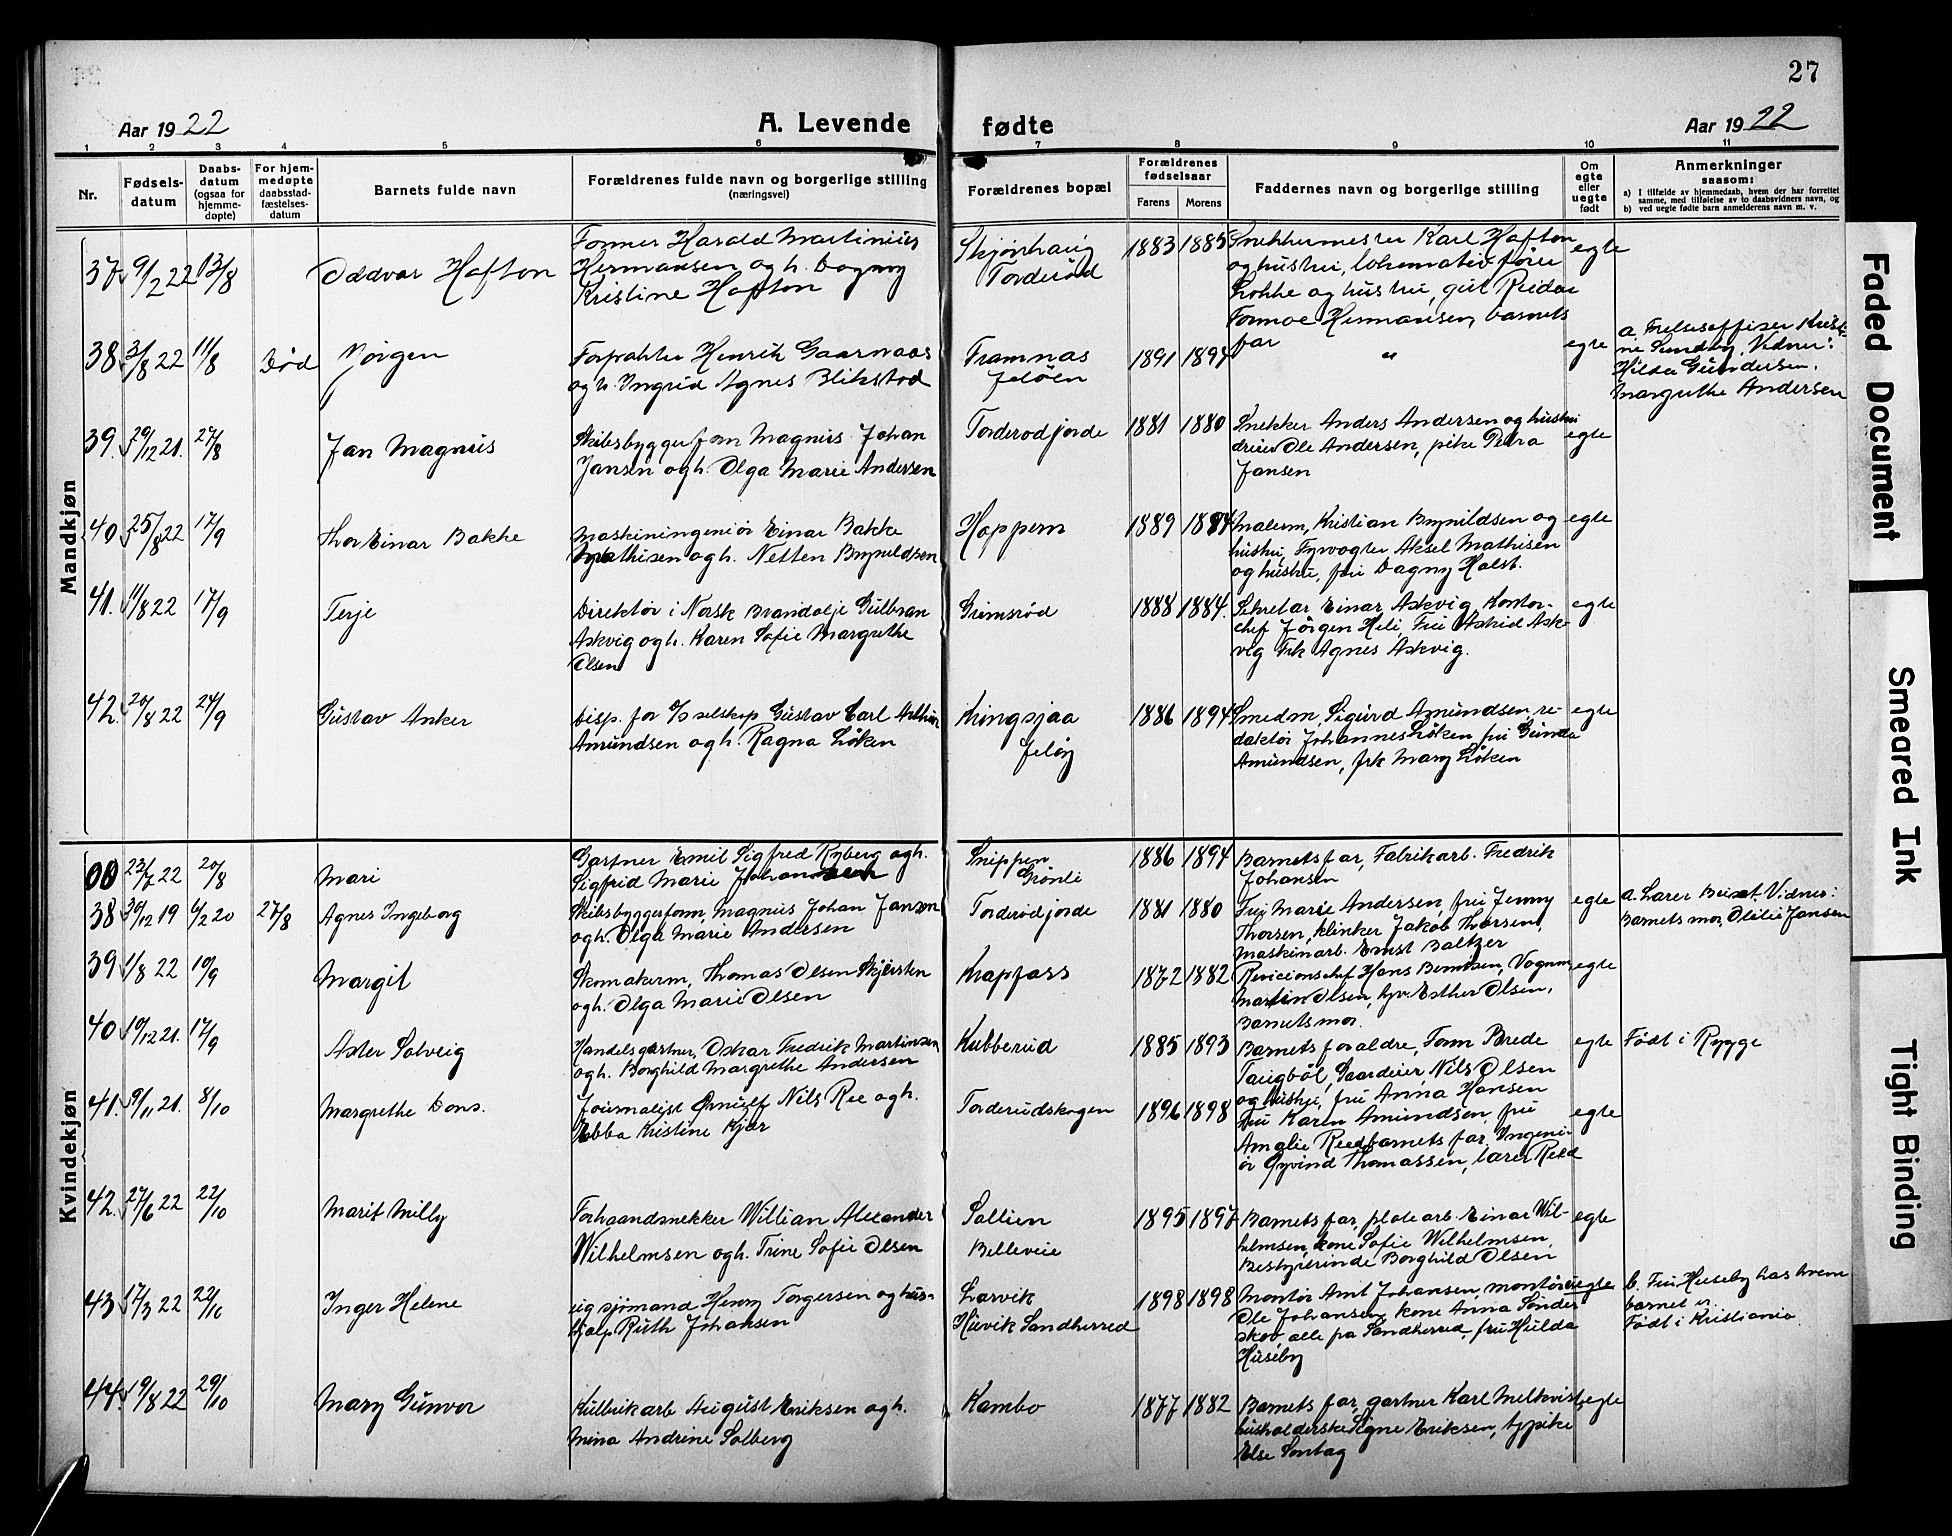 27
Aar 1922 A. Levende fødte Aar 1922
1 2 3 4 5 6 7 8 9 10 11
Nr. Fødsels-datum Daabs-datum (ogsaa for hjemme-døpte) For hjem-medøpte daabsstad-fæstelses-datum Barnets fulde navn Forældrenes fulde navn og borgerlige stilling (næringsvei) Forældrenes bopæl Forældrenes fødselsaar Farens Morens Faddernes navn og borgerlige stilling Om egte eller uegte født Anmerkninger saasom:
a) I tilfælde av hjemmedaab, hvem der har forrettet samme, med tilføielse av to daabsvidners navn, og
b) ved uegte fødte barn anmelderens navn m. v.
Mandkjøn
37 9/2 22 13/8 Oddvar Hafton Former Harald Martinius Skjønhaug 1883 1885 Snekkermester Karl Hafton egte
Hermansen og h. Dagny Torderød og hustru, lokomotivfører
Kristine Hafton Lokke og hustru, gut Reidar
Formoe Hermansen, barnets
far
38 3/8 22 11/8 Død Jørgen Forpakter Henrik Gaarnaas Framnas 1891 1894 " egte a. Frelsesoffiser Kristi-
og h. Ingrid Agnes Blikstad Jeløen ne Sundby, Vidner:
Hilda Gundersen.
Margrethe Andersen
39. 29/12 21. 27/8 Jan Magnus Skibsbyggerform Magnus Johan Torderødjorde 1881 1880 Snekker Anders Andersen og hustru egte
Jansen og h. Olga Marie Andersen Ole Andersen, pike Petra
Jansen
40 25/8 22 17/9 Thor Einar Bakke Maskiningeniør Einar Bakke Hoppern 1889 1884 Malerm, Kristian Brynildsen og egte
Mathisen og h. Netten Brynildsen hustru, Fyrvogter Aksel Mathisen
og hustru, fru Dagny Holst.
41. 11/8 22 17/9 Terje Direktør i Norsk Brandolje Gulbran Grimsrød 1888 1884. Sekretar Einar Askvig, Kontor- egte
Askvig og h. Karen Sofie Margrethe chef Jørgen Heli, Fru Astrid Ask-
Olsen vig Frk Agnes Askvig.
42. 20/8 22 24/9 Gustav Anker Disp. for o/s selskap Gustav Carl Arthur Kringsjaa 1886 1894 Smedm, Sigurd Amundsen, re- egte
Amundsen og h. Ragna Løken Jeløy daktør Johannes Løken fru Gunda
Amundsen, frk Mary Løken
Kvindekjøn
23/7 22 20/8 Mari Gartner Emil Sigfred Ryberg og h. Snippen 1886 1894 Barnets far, Fabrikarb. Fredrik
Sigfrid Marie Johansen Grønli Johansen
38 30/12 19 6/2 20 27/8 Agnes Ingeborg Skibsbyggerform, Magnus Johan Jansen Torderødjorde 1881 1880 Fru Marie Andersen, fru Jenny egte a. Lærer Vidner:
og h. Olga Marie Andersen Thorsen, klinker Jakob Thorsen, Barnets mor, Otilie Jansen
Maskinarb. Ernst Baltzer
39 1/8 22 10/9 Margit Skomakerm, Thomas Olsen Skjersten Krapfoss 1872 1882 Revisionschef Hans Berntsen, Vognm, egte
og h. Olga Marie Olsen Martin Olsen, Esther Olsen,
Barnets mor.
40 19/12 21. 17/9 Aster Solveig Handelsgartner, Oskar Fredrik Martinsen Kubberud 1885 1893 Barnets foraldre, Form Brede egte Født i Rygge
og h. Borghild Margrethe Andersen Taugbøl, Gaardeier, Nils Olsen
og hustru, fru Anna Hansen
41. 9/11 21. 8/10 Margrethe Dons. Journalist Ørnulf Nils Ree og h. Torderudskogen 1896 1898 Fru Karen Amundsen, fru egte
Ebba Kristine Kjær Amalie Ree, barnets far, Ingeni-
ør Øyvind Thomassen, lærer Reed
42. 27/6 22 22/10 Marit Milly Forhaandsnekker Willian Alexander Sollien 1895 1897 Barnets far, platearb. Einar Wil- egte
Wilhelmsen og h. Trine Sofie Olsen Bellevue helmsen, kone Sofie Wilhelmsen,
Bestyrerinde Borghild Olsen
43 17/3 22 22/10 Inger Helene ug sjømand Henry Torgersen og hus- Larvik 1898 1898 Montør Arnt Johansen, montør uegte b. Fru Huseby hos hvem
hjælp Ruth Johansen Huvik Sandherred Ole Johansen, kone Anna Sønder barnet er
skov, alle pa Sandherred, fru Hulda Født i Kristiania
Huseby
44. 19/8 22 29/10 Mary Gunvor August Eriksen og h. Kambo 1877 1882 Barnets far, gartner Karl Melkvist, egte
Mina Andrine Solberg husholderske Signe Eriksen, tjpike
Else Sontag
Faded Document
Smeared Ink
Tight Binding